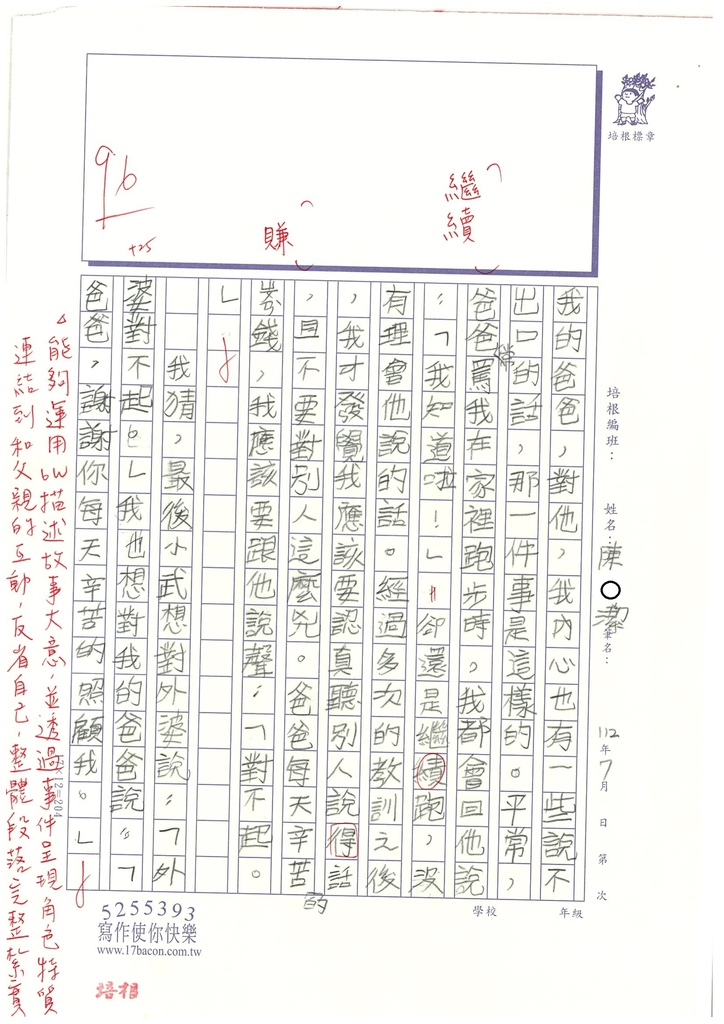 培根標章
培根編班：
姓名：陳○潔
筆名：
112年7月 日 第 次
學校 年級
96
+25
繼續
賺
我的爸爸，對他，我內心也有一些說不
出口的話，那一件事是這樣的。平常，
爸爸常罵我在家裡跑步時，我都會回他說
：「我知道啦！」卻還是繼續跑，沒
有理會他說的話。經過多次的教訓之後
，我才發覺我應該要認真聽別人說得話
，且不要對別人這麼兇。爸爸每天辛苦
錢，我應該要跟他說聲：「對不起。
」
我猜，最後小武想對外婆說：「外
婆對不起。」我也想對我的爸爸說：「
爸爸，謝謝你每天辛苦的照顧我。」
的
17×12=204
△能夠運用6W描述故事大意，並透過事件呈現角色特質
連結到和父親的互動，反省自己，整體段落完整紮實
5255393
寫作使你快樂
www.17bacon.com.tw
培相